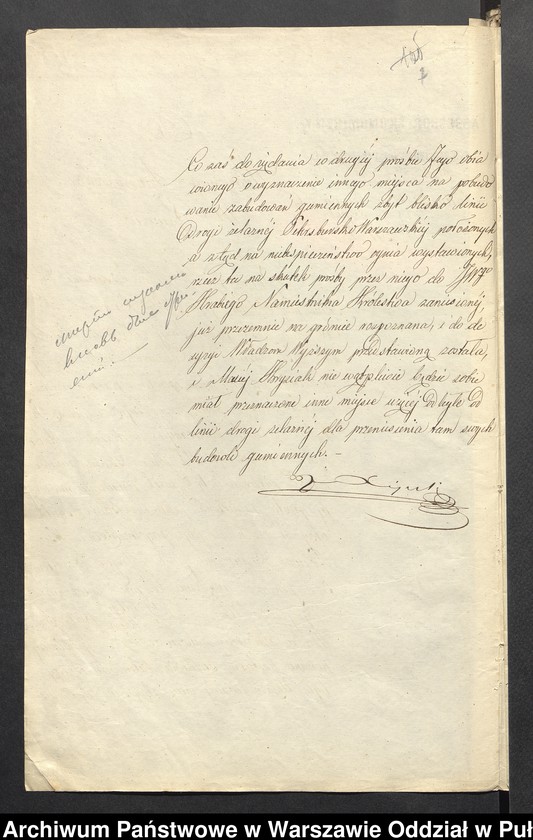 Co zaś do żądania w drugiéj prosbie Jego obja
wionego o wyznaczenie innego miejsca na pobudo
wanie zabudowań gumiennych zbyt blisko linii
Drogi żelaznéj Petersbursko Warszawskiéj położonych
a ztąd na niebezpieczeństwo ognia wystawionych,
rzecz ta na skutek prosby przez niego do JWgo
Hrabiego Namiestnika Królestwa zaniesionéj,
już przezemnie na gróncie rozpoznaną, i do de
cyzyi Władzom Wyższym przedstawioną została,
i Maciej nie wątpliwie będzie sobie
miał przeznaczone inne miejsce więcéj odległe od
linii drogi żelaznéj dla przeniesienia tam swych
budowli gumiennych. –
Archiwum Państwowe w Warszawie Oddział w Puł